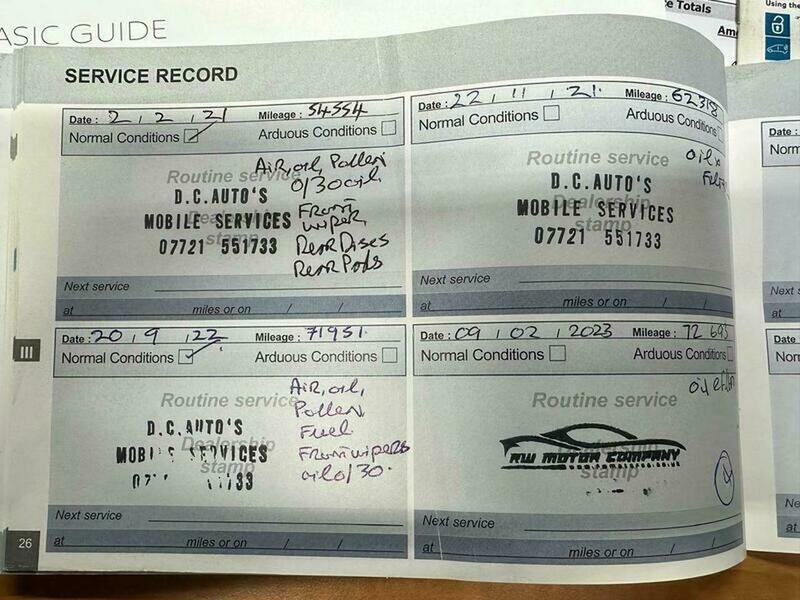 ASIC GUIDE
SERVICE RECORD
Date : 2 , 2 , 21 Mileage : 54554
Normal Conditions Arduous Conditions
Routine service
Dealership
stamp
D.C.AUTO'S
MOBILE SERVICES
07721 551733
Air, oil, Pollen
0/30 oil.
Front
wiper
Rear Discs
Rear Pads
Next service
at miles or on / /
Date : 22 , 11 , 21. Mileage : 62318
Normal Conditions Arduous Conditions
Routine service
Dealership
stamp
D.C.AUTO'S
MOBILE SERVICES
07721 551733
oil
Next service
at miles or on / /
Date : 20 , 9 , 22 Mileage : 71951.
Normal Conditions Arduous Conditions
Routine service
Dealership
stamp
D.C.AUTO'S
SERVICES
Air, oil,
Pollen
Fuel
Front wipers
oil 0/30.
Next service
at miles or on / /
Date : 09 , 02 , 2023 Mileage : 72 693
Normal Conditions Arduous Conditions
Routine service
stamp
RW MOTOR COMPANY
oil
Next service
at miles or on / /
III
26
e Totals
Using the
Date :
Norm
Next s
at
Date :
Norm
Next
at